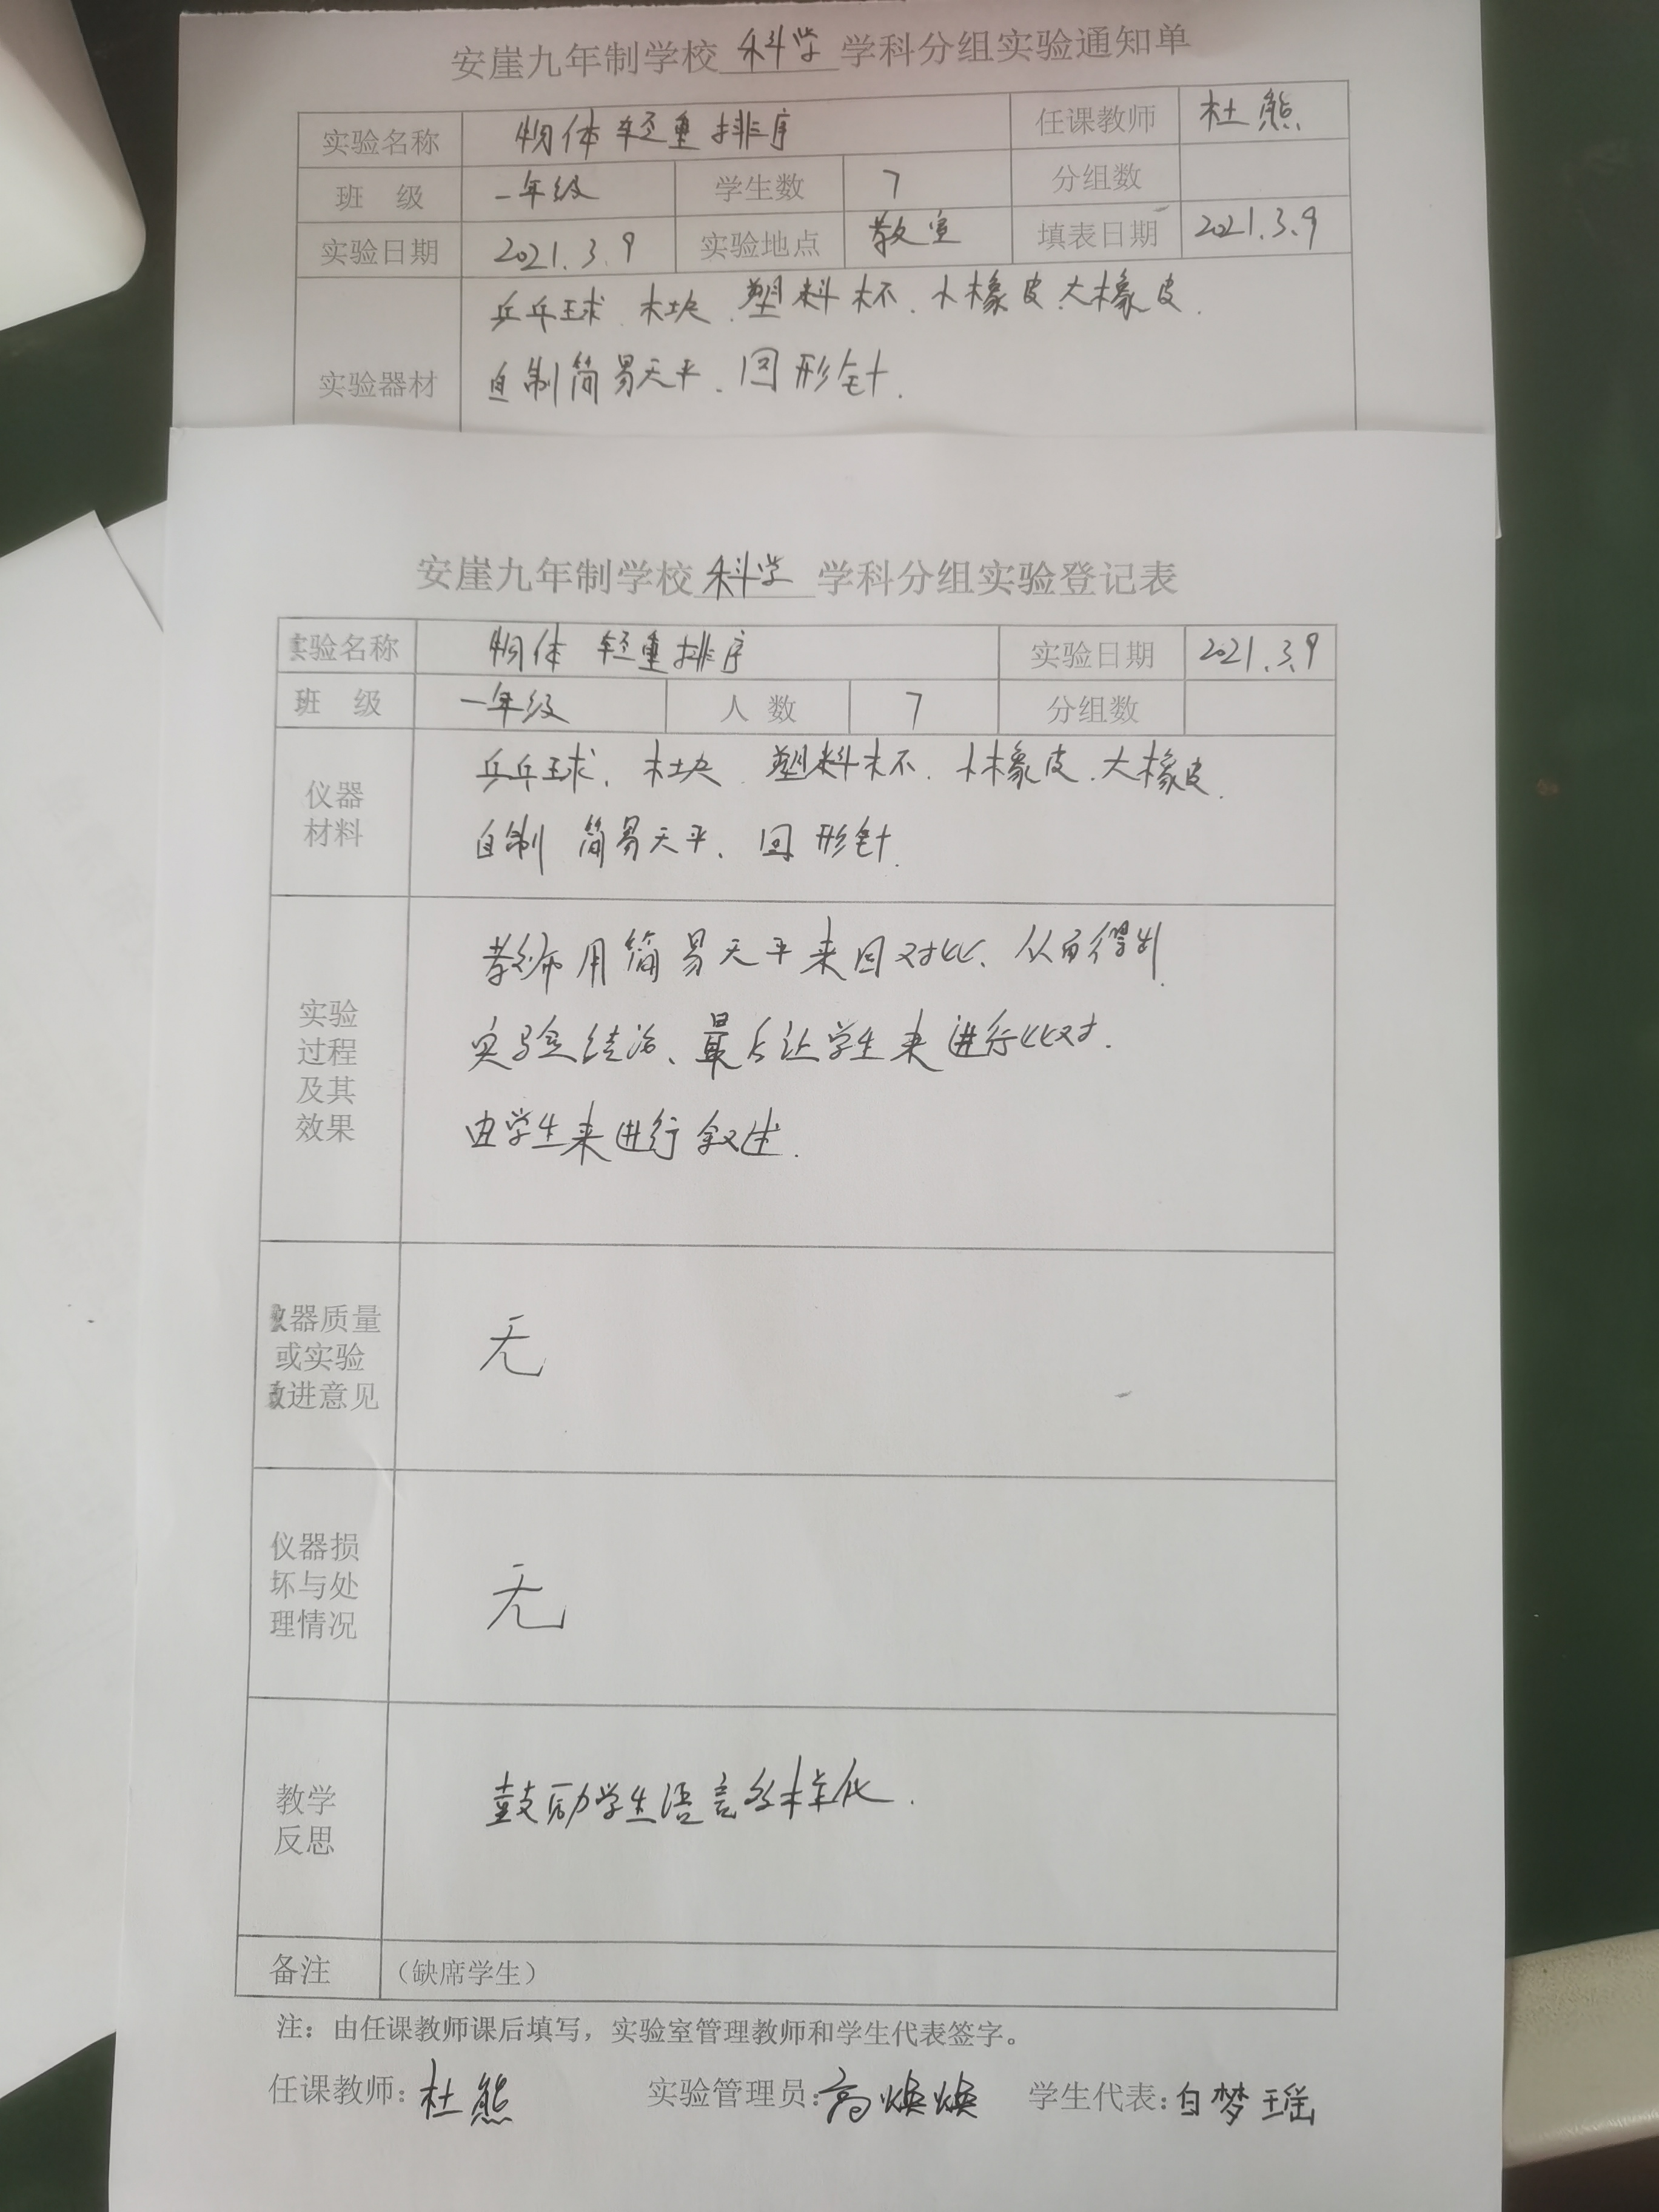 安崖九年制学校 科学 学科分组实验通知单
实验名称 物体轻重排序 任课教师 杜熊
班 级 一年级 学生数 7 分组数
实验日期 2021.3.9 实验地点 教室 填表日期 2021.3.9
乒乓球、木块、塑料杯、小橡皮、大橡皮、
实验器材 自制简易天平、回形针.
安崖九年制学校 科学 学科分组实验登记表
实验名称 物体轻重排序 实验日期 2021.3.9
班 级 一年级 人 数 7 分组数
乒乓球、木块、塑料杯、小橡皮、大橡皮、
仪器
材料
自制简易天平、回形针.
教师用简易天平来回对比、从而得出
实验结论、最后让学生来进行比对.
由学生来进行叙述.
实验
过程
及其
效果
仪器质量
或实验
改进意见
无
仪器损
坏与处
理情况
无
教学
反思
鼓励学生语言多样化.
备注 （缺席学生）
注：由任课教师课后填写，实验室管理教师和学生代表签字。
任课教师：杜熊 实验管理员：高焕焕 学生代表：白梦瑶